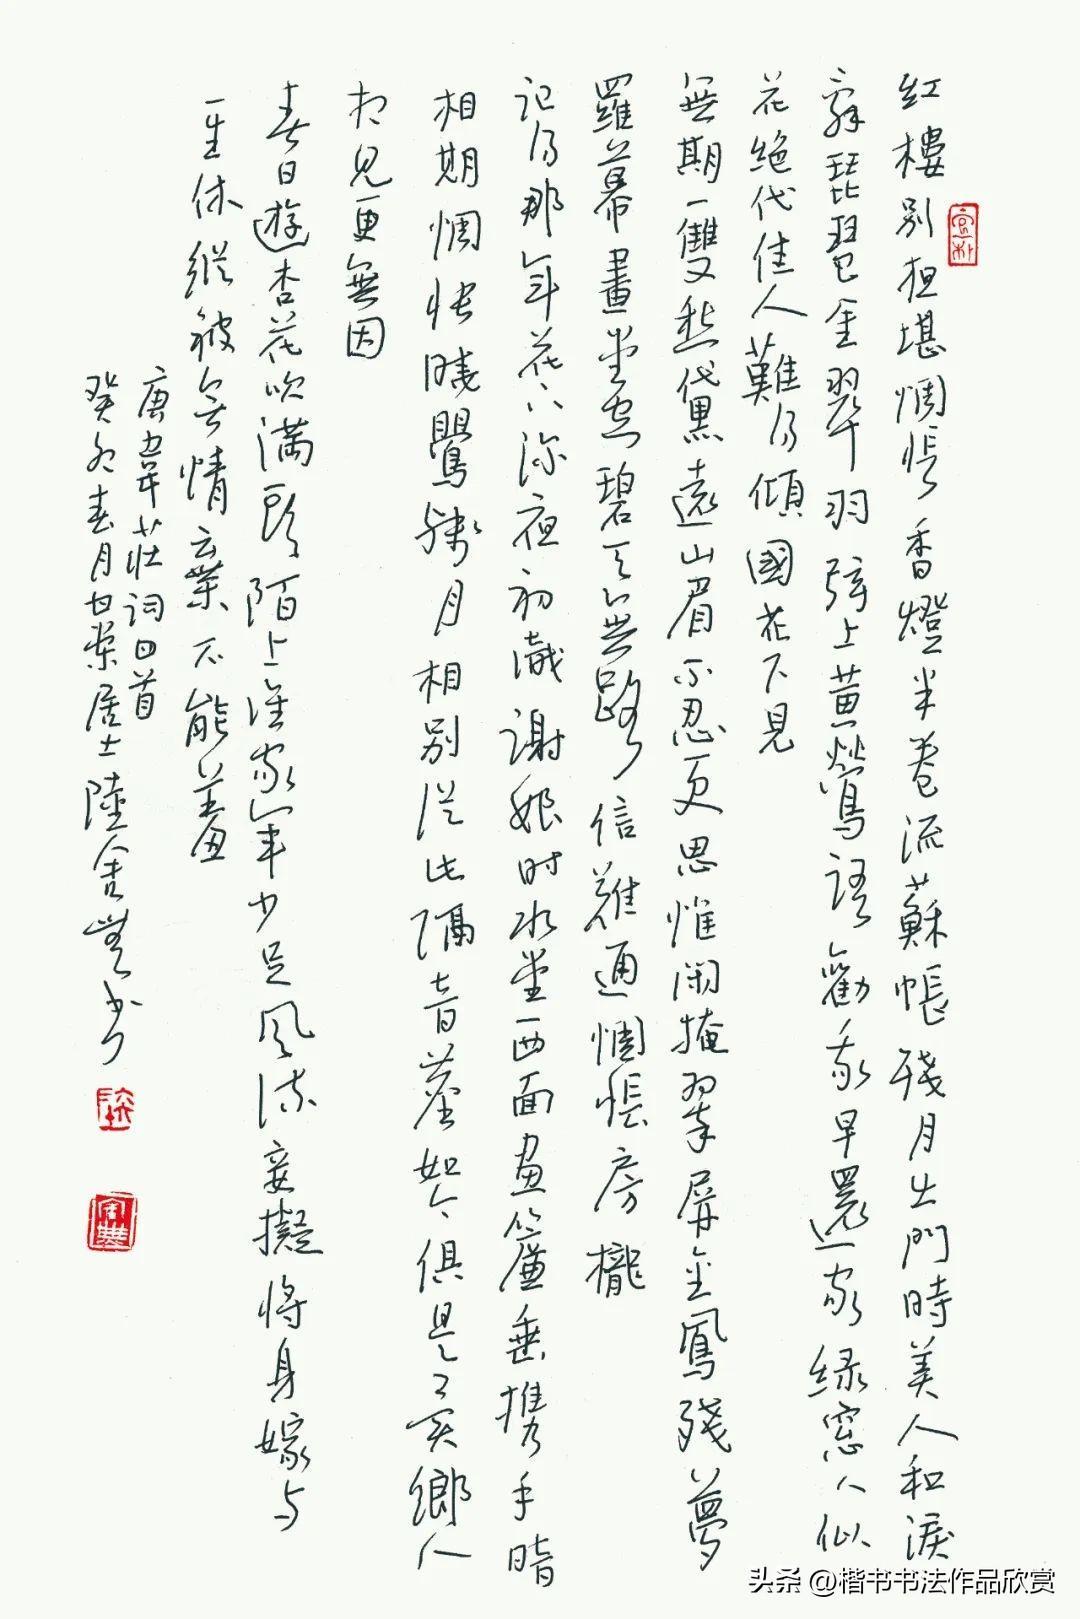 紅樓別夜堪惆悵香燈半卷流蘇帳殘月出門時美人和淚
辭琵琶金翠羽弦上黃鶯語勸我早還家綠窓人似
花絕代佳人難得傾國花下見
無期一雙愁黛遠山眉不忍更思惟閑掩翠屏金鳳殘夢
羅幕畫堂空碧天無路信難通惆悵房櫳
記得那年花下深夜初識謝娘時水堂西面畫簾垂攜手暗
相期惆悵曉鶯殘月相別從此隔音塵如今俱是異鄉人
相見更無因
春日遊杏花吹滿頭陌上誰家年少足風流妾擬將身嫁與
一生休縱被無情棄不能羞
唐韋莊詞四首
癸卯春月甘棠居士陸書
头条 @楷书书法作品欣赏